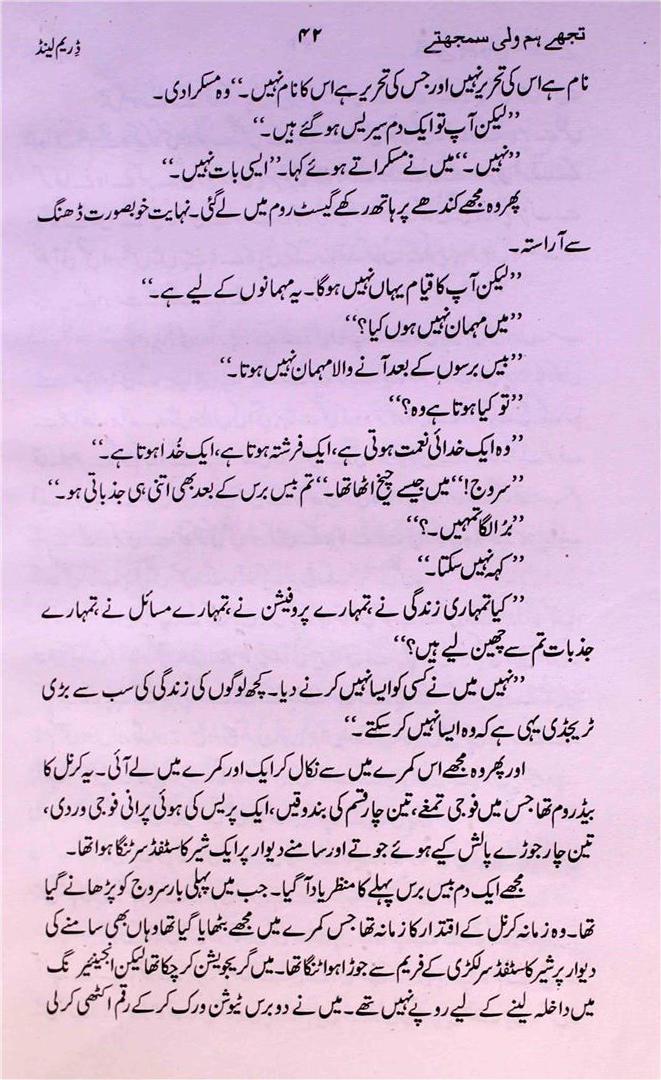 تجھے ہم ولی سمجھتے ۴۲ ڈریم لینڈ
نام ہے اس کی تحریر نہیں اور جس کی تحریر ہے اس کا نام نہیں۔‘‘ وہ مسکرا دی۔
’’لیکن آپ تو ایک دم سیریس ہو گئے ہیں۔‘‘
’’نہیں۔‘‘ میں نے مسکراتے ہوئے کہا۔ ’’ایسی بات نہیں۔‘‘
پھر وہ مجھے کندھے پر ہاتھ رکھے گیسٹ روم میں لے گئی۔ نہایت خوبصورت ڈھنگ
سے آراستہ۔
’’لیکن آپ کا قیام یہاں نہیں ہوگا۔ یہ مہمانوں کے لیے ہے۔‘‘
’’میں مہمان نہیں ہوں کیا؟‘‘
’’بیس برسوں کے بعد آنے والا مہمان نہیں ہوتا۔‘‘
’’تو کیا ہوتا ہے وہ؟‘‘
’’وہ ایک خدائی نعمت ہوتی ہے، ایک فرشتہ ہوتا ہے، ایک خُدا ہوتا ہے۔‘‘
’’سروج!‘‘ میں جیسے چیخ اٹھا تھا۔ ’’تم بیس برس کے بعد بھی اتنی ہی جذباتی ہو۔‘‘
’’برُا لگا تمہیں۔؟‘‘
’’کہہ نہیں سکتا۔‘‘
’’کیا تمہاری زندگی نے، تمہارے پروفیشن نے، تمہارے مسائل نے، تمہارے
جذبات تم سے چھین لیے ہیں؟‘‘
’’نہیں میں نے کسی کو ایسا نہیں کرنے دیا۔ کچھ لوگوں کی زندگی کی سب سے بڑی
ٹریجڈی یہی ہے کہ وہ ایسا نہیں کر سکتے۔‘‘
اور پھر وہ مجھے اس کمرے میں سے نکال کر ایک اور کمرے میں لے آئی۔ یہ کرنل کا
بیڈ روم تھا جس میں فوجی تمغے، تین چار قسم کی بندوقیں، ایک پریس کی ہوئی پرانی فوجی وردی،
تین چار جوڑے پالش کیے ہوئے جوتے اور سامنے دیوار پر ایک شیر کا سٹفڈ سر ٹنگا ہوا تھا۔
مجھے ایک دم بیس برس پہلے کا منظر یاد آگیا۔ جب میں پہلی بار سروج کو پڑھانے گیا
تھا۔ وہ زمانہ کرنل کے اقتدار کا زمانہ تھا جس کمرے میں مجھے بٹھایا گیا تھا وہاں بھی سامنے کی
دیوار پر شیر کا سٹفڈ سر لکڑی کے فریم سے جوڑا ہوا ٹنگا تھا۔ میں گریجویشن کر چکا تھا لیکن انجینئیر نگ
میں داخلہ لینے کے لیے روپے نہیں تھے۔ میں نے دو برس ٹیوشن ورک کر کے رقم اکٹھی کر لی